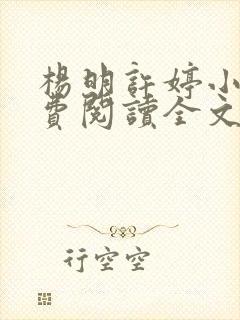 楊明許婷小
費閱讀全文
行空空